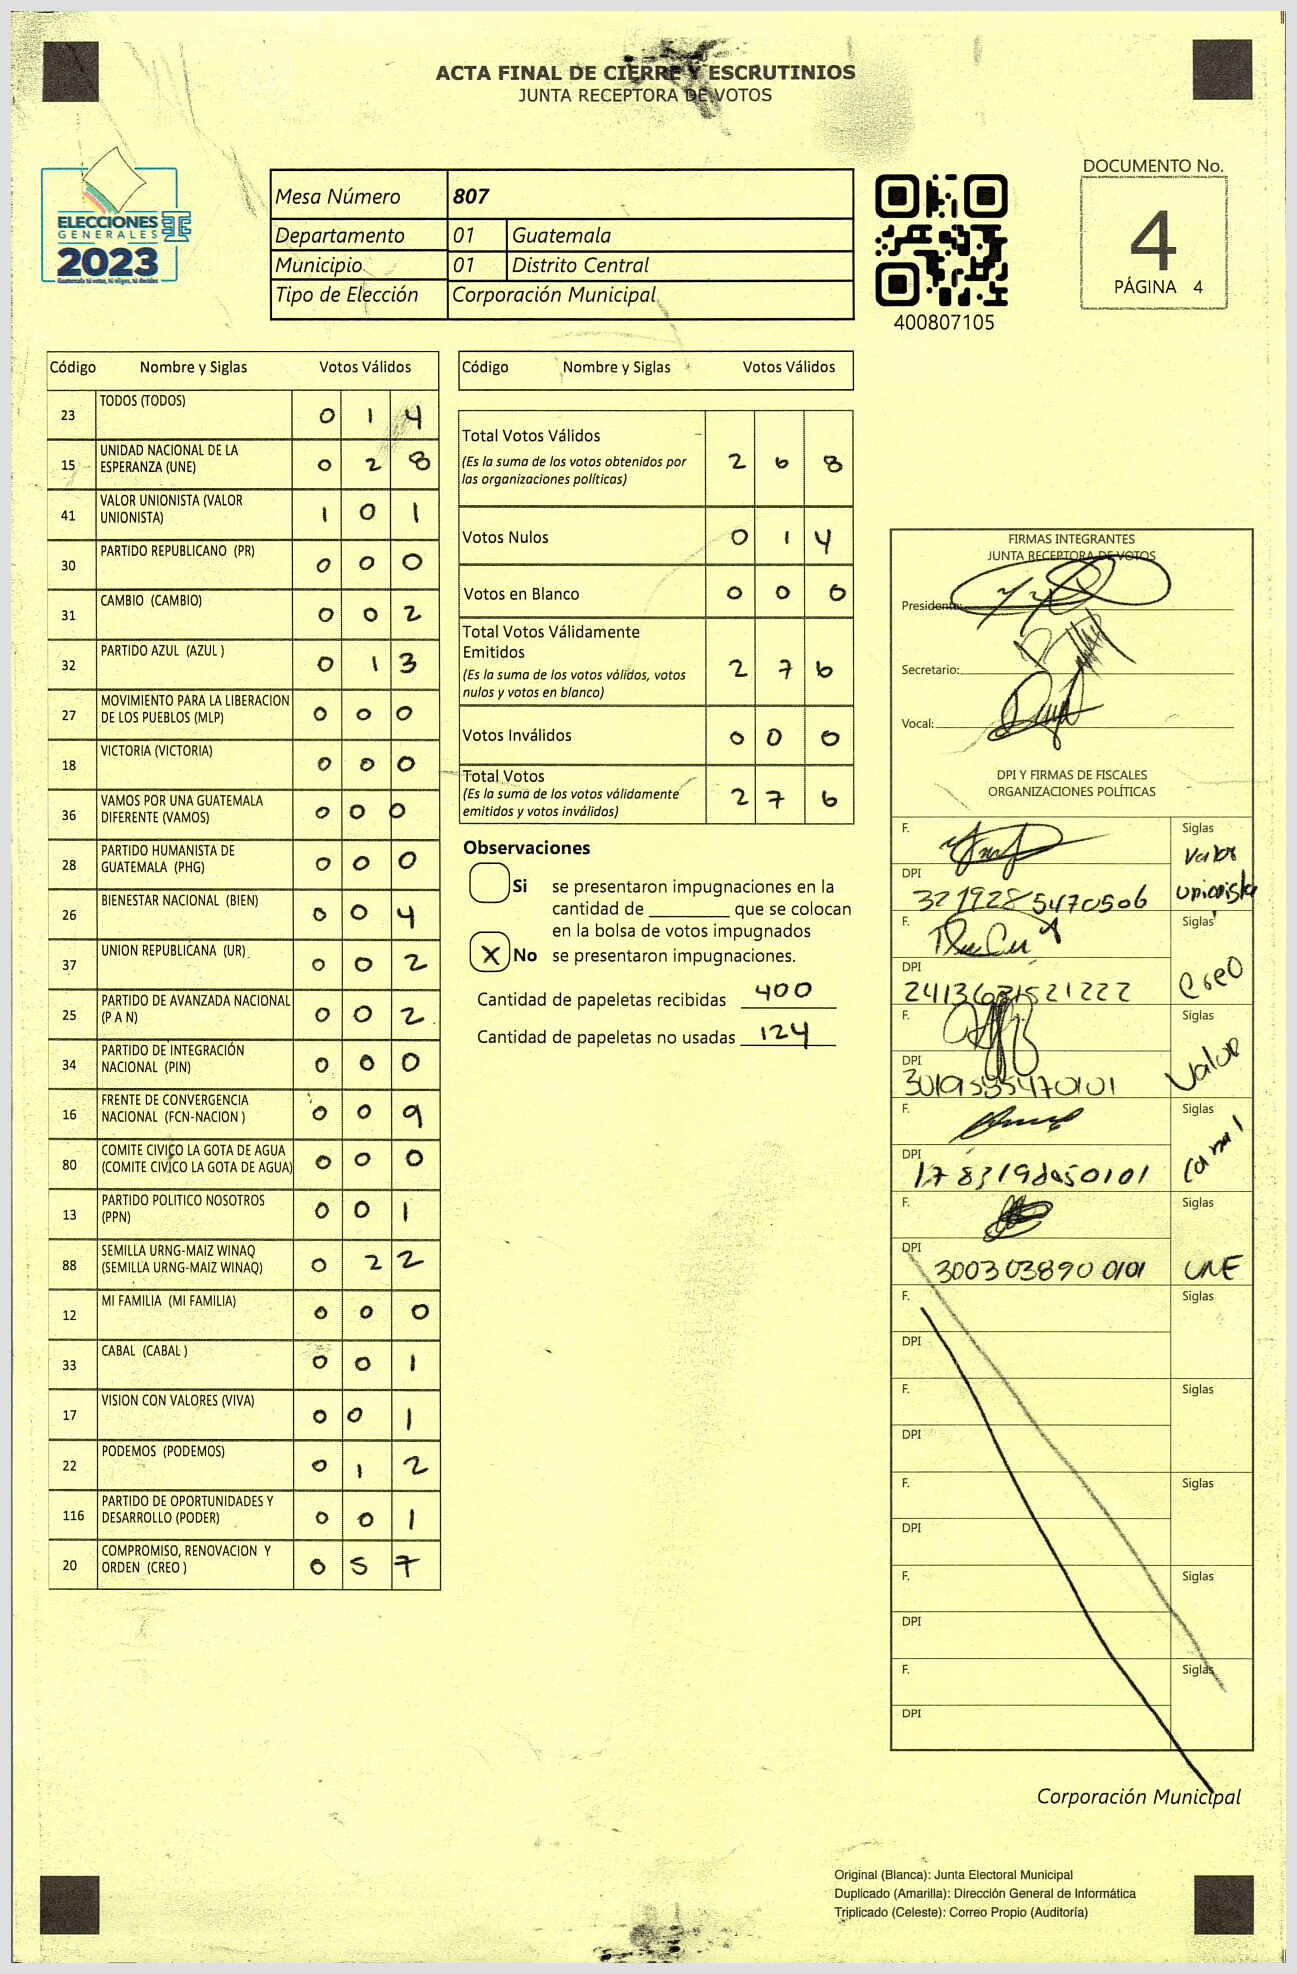 ACTA FINAL DE CIERRE Y ESCRUTINIOS
JUNTA RECEPTORA DE VOTOS
ELECCIONES
GENERALES
2023
Guatemala tú votas, tú eliges, tú decides
Mesa Número 807
Departamento 01 Guatemala
Municipio 01 Distrito Central
Tipo de Elección Corporación Municipal
400807105
DOCUMENTO No.
4
PÁGINA 4
Código Nombre y Siglas Votos Válidos
23 TODOS (TODOS) 0 1 4
15 UNIDAD NACIONAL DE LA ESPERANZA (UNE) 0 2 8
41 VALOR UNIONISTA (VALOR UNIONISTA) 1 0 1
30 PARTIDO REPUBLICANO (PR) 0 0 0
31 CAMBIO (CAMBIO) 0 0 2
32 PARTIDO AZUL (AZUL ) 0 1 3
27 MOVIMIENTO PARA LA LIBERACION DE LOS PUEBLOS (MLP) 0 0 0
18 VICTORIA (VICTORIA) 0 0 0
36 VAMOS POR UNA GUATEMALA DIFERENTE (VAMOS) 0 0 0
28 PARTIDO HUMANISTA DE GUATEMALA (PHG) 0 0 0
26 BIENESTAR NACIONAL (BIEN) 0 0 4
37 UNION REPUBLICANA (UR) 0 0 2
25 PARTIDO DE AVANZADA NACIONAL (P A N) 0 0 2
34 PARTIDO DE INTEGRACIÓN NACIONAL (PIN) 0 0 0
16 FRENTE DE CONVERGENCIA NACIONAL (FCN-NACION ) 0 0 9
80 COMITE CIVICO LA GOTA DE AGUA (COMITE CIVICO LA GOTA DE AGUA) 0 0 0
13 PARTIDO POLITICO NOSOTROS (PPN) 0 0 1
88 SEMILLA URNG-MAIZ WINAQ (SEMILLA URNG-MAIZ WINAQ) 0 2 2
12 MI FAMILIA (MI FAMILIA) 0 0 0
33 CABAL (CABAL ) 0 0 1
17 VISION CON VALORES (VIVA) 0 0 1
22 PODEMOS (PODEMOS) 0 1 2
116 PARTIDO DE OPORTUNIDADES Y DESARROLLO (PODER) 0 0 1
20 COMPROMISO, RENOVACION Y ORDEN (CREO ) 0 5 7
Código Nombre y Siglas Votos Válidos
Total Votos Válidos 2 6 8
(Es la suma de los votos obtenidos por
las organizaciones políticas)
Votos Nulos 0 1 4
Votos en Blanco 0 0 0
Total Votos Válidamente
Emitidos 2 7 6
(Es la suma de los votos válidos, votos
nulos y votos en blanco)
Votos Inválidos 0 0 0
Total Votos 2 7 6
(Es la suma de los votos válidamente
emitidos y votos inválidos)
Observaciones
Si se presentaron impugnaciones en la
cantidad de ________ que se colocan
en la bolsa de votos impugnados
X No se presentaron impugnaciones.
Cantidad de papeletas recibidas 400
Cantidad de papeletas no usadas 124
FIRMAS INTEGRANTES
JUNTA RECEPTORA DE VOTOS
Presidente:
Secretario:
Vocal:
DPI Y FIRMAS DE FISCALES
ORGANIZACIONES POLÍTICAS
F. Siglas Valor Unionista
DPI 321928 5470506
F. Siglas Creo
DPI
F. Siglas Valor
DPI
F. Siglas
DPI
F. Siglas UNE
DPI 300303890 0101
F. Siglas
DPI
F. Siglas
DPI
F. Siglas
DPI
F. Siglas
DPI
F. Siglas
DPI
Corporación Municipal
Original (Blanca): Junta Electoral Municipal
Duplicado (Amarilla): Dirección General de Informática
Triplicado (Celeste): Correo Propio (Auditoría)